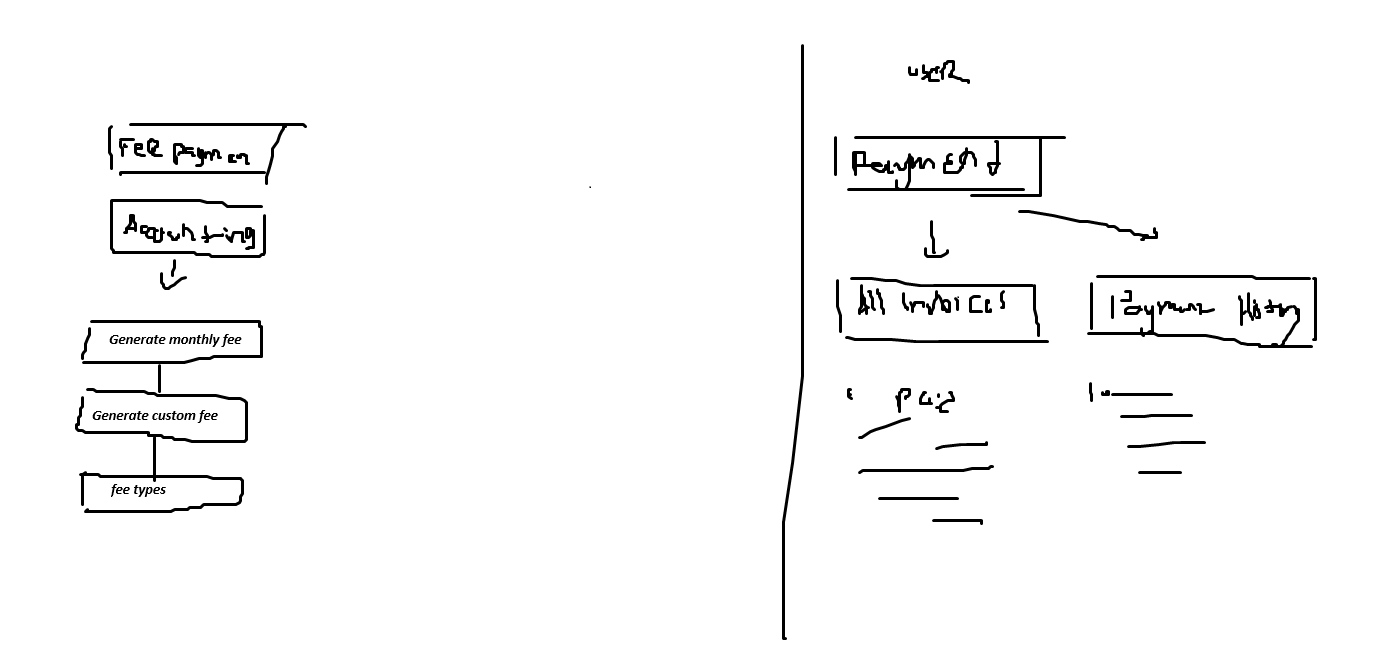 Fee paymen
Accounting
Generate monthly fee
Generate custom fee
fee types
USER
Payment
All Invoices
Payment History
paid